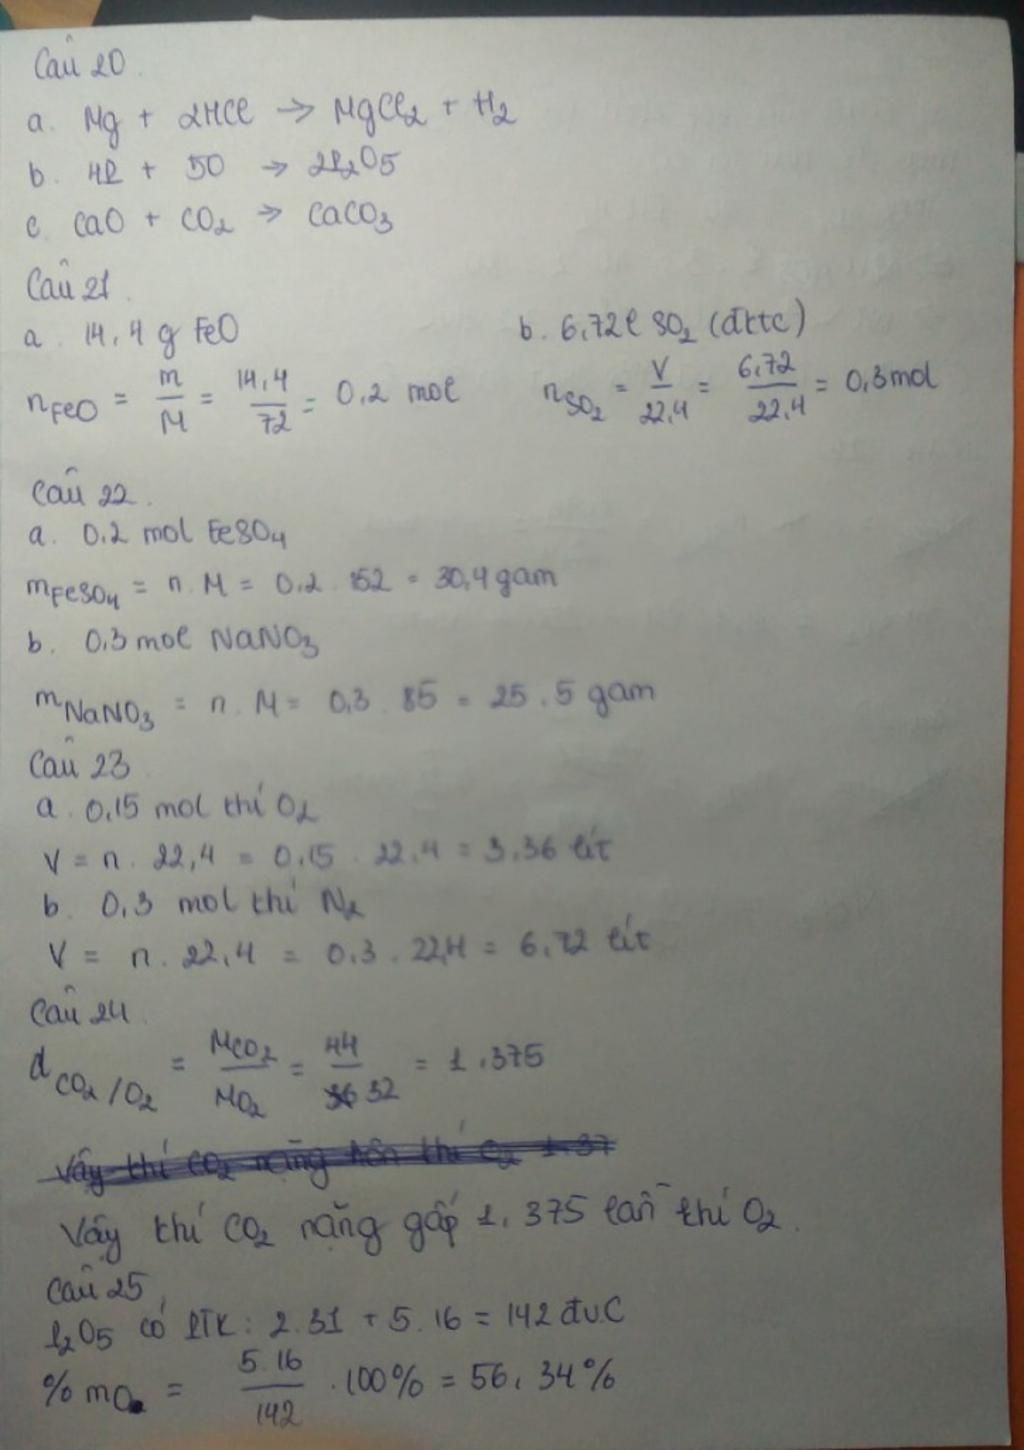 Câu 20.
a. Mg + 2HCl → MgCl2 + H2
b. 4P + 5O → 2P2O5
c. CaO + CO2 → CaCO3
Câu 21.
a. 14,4 g FeO
nFeO = m/M = 14,4/72 = 0.2 mol
b. 6,72l SO2 (đktc)
nSO2 = V/22,4 = 6,72/22,4 = 0,3mol
Câu 22.
a. 0.2 mol FeSO4
mFeSO4 = n. M = 0.2 . 152 = 30,4 gam
b. 0.3 mol NaNO3
mNaNO3 = n. M = 0,3 . 85 = 25.5 gam
Câu 23
a. 0,15 mol khí O2
V = n. 22,4 = 0,15 . 22,4 = 3,36 lít
b. 0,3 mol khí N2
V = n. 22,4 = 0.3 . 22,4 = 6,72 lít
Câu 24.
dCO2/O2 = MCO2/MO2 = 44/32 = 1.375
Vậy khí CO2 nặng hơn khí O2 1.37
Vậy khí CO2 nặng gấp 1.375 lần khí O2.
Câu 25,
P2O5 có PTK: 2.31 + 5.16 = 142 đvC
% mO = 5.16/142 . 100% = 56,34%